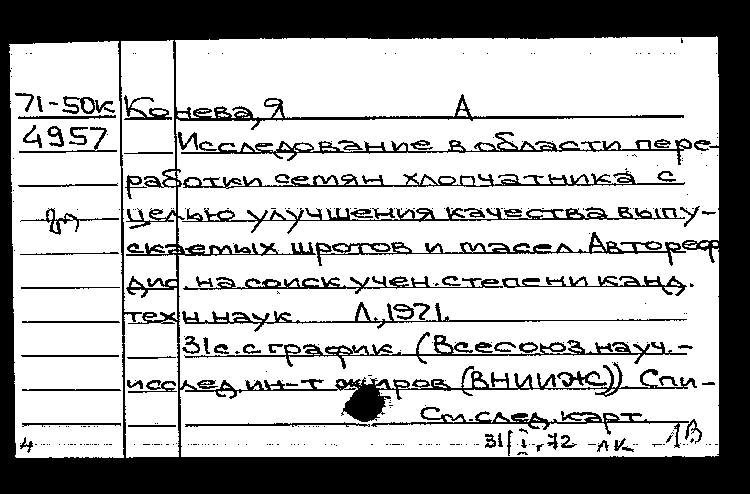 71-50к Конева, Я А
4957 Исследование в области пере-
работки семян хлопчатника с
целью улучшения качества выпу-
скаемых шротов и масел. Автореф
дис. на соиск. учен. степени канд.
техн. наук. Л., 1971.
31 с. с график. (Всесоюз. науч.-
исслед. ин-т жиров (ВНИИЖ)) Спи-
См. след. карт.
4 31/I.72 лк 1В